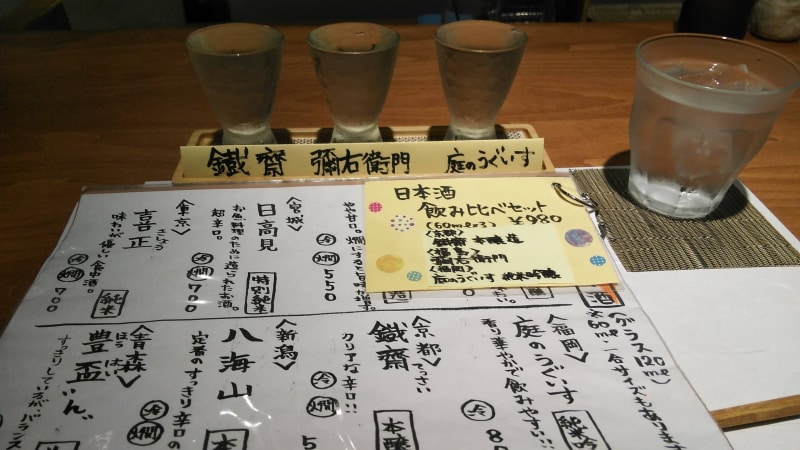 鐵齋 彌右衛門 庭のうぐいす
日本酒
飲み比べセット
¥980
(60ml×3)
〈京都〉
鐵齋 本醸造
〈福島〉
彌右衛門
〈福岡〉
庭のうぐいす 純米吟醸
やや甘口。燗にすると旨味が
冷 燗 550
〈宮城〉
日高見
特別純米
お魚料理のために造られたお酒。
超辛口。
冷 燗 700
〈東京〉
喜正
きしょう
純米
味わいが優しい食中酒。
冷 燗 700
〈グラス120ml〉
※60ml、一合サイズもあります
酒
〈福岡〉
庭のうぐいす
純米吟
香り華やかで飲みやすい!!
冷
〈京都〉
鐵齋
てっさい
本醸
クリアな辛口!!
冷 燗
〈新潟〉
八海山
本
定番のすっきり辛口の
冷 燗
〈青森〉
豊盃
ほうはい
すっきりしているが、バランス